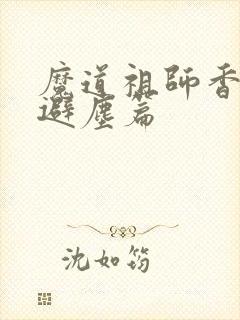 魔道祖師香
避塵篇
沈如筠